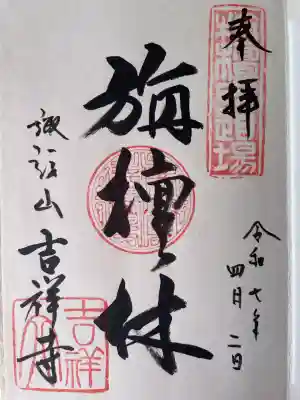 奉拝
令和七年
四月二日
旃檀林
諏訪山 吉祥寺
吉祥